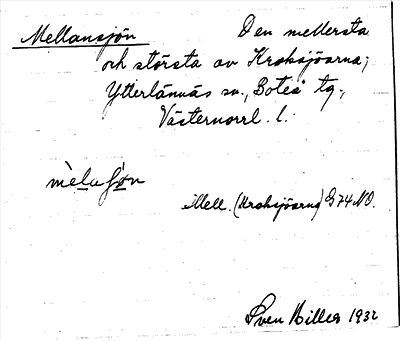 Mellansjön Den mellersta
och största av Kroksjöarna;
Ytterlännäs sn., Boteå tg.,
Västernorrl. l.
Mell. (Kroksjöarna) G 74 NO.
Sven Hillea 1932